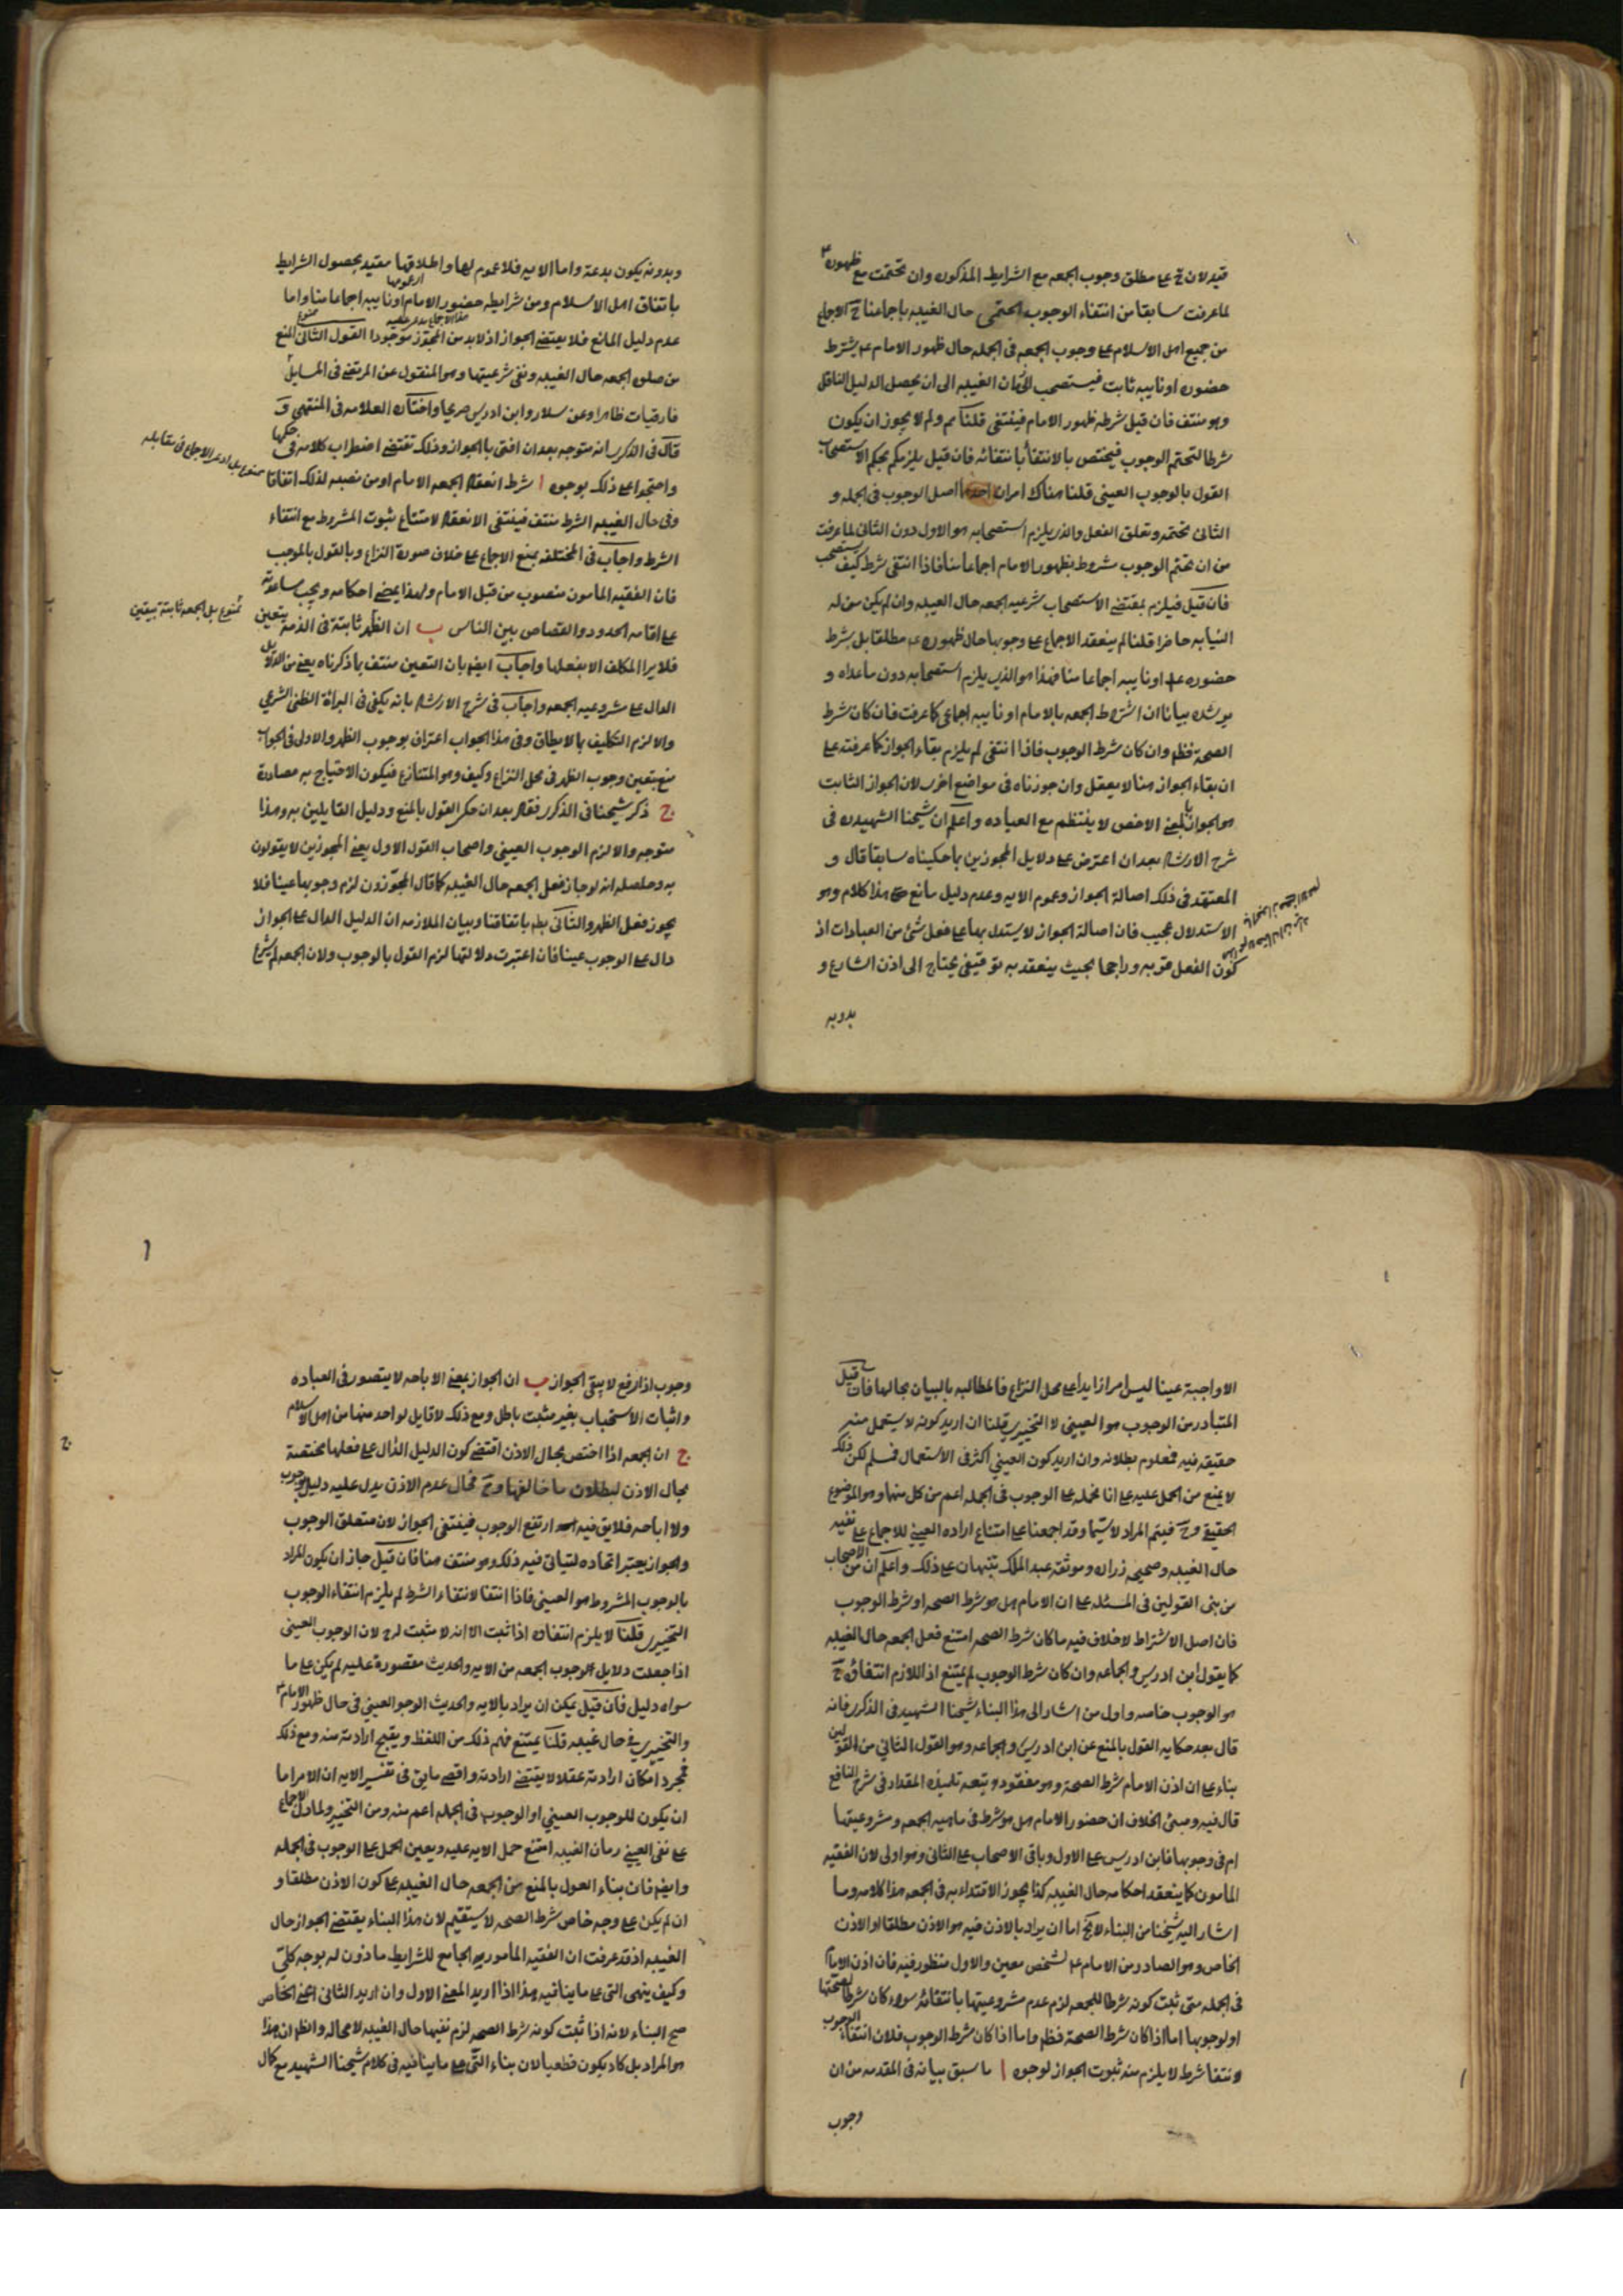 قيد لان ح على مطلق وجوب الجمعه مع الشرايط المذكوره وان تحتمت مع ظهوره
لما عرفت سابقا من انتفاء الوجوب الحتمى حال الغيبه باجماعنا ح الاجماع
من جميع اهل الاسلام على وجوب الجمعه فى الجمله حال ظهور الامام ع بشرط
حضوره او نايبه ثابت فيستصحب الى زمان الغيبه الى ان يحصل الدليل الناقل
وهو منتف فان قيل شرطه ظهور الامام فينتفى قلنا مم ولم لا يجوز ان يكون
شرطا لتحتم الوجوب فيختص بالانتفاء بانتفائه فان قيل يلزمكم بحكم الاستصحاب
القول بالوجوب العينى قلنا هناك امران احدهما اصل الوجوب فى الجمله و
الثانى تحتمه وتعلق الفعل والذى يلزم استصحابه هو الاول دون الثانى لما عرفت
من ان تحتم الوجوب مشروط بظهور الامام اجماعا منا فاذا انتفى شرط كيف يستصحب
فان قيل فيلزم بمقتضى الاستصحاب شرعيه الجمعه حال الغيبه وان لم يكن من له
النيابه حاضرا قلنا لم ينعقد الاجماع على وجوبها حال ظهوره ع مطلقا بل بشرط
حضوره ع او نايبه اجماعا منا فهذا هو الذى يلزم استصحابه دون ما عداه و
يرشده بيانا ان اشتراط الجمعه بالامام او نايبه اجماعى كما عرفت فان كان شرط
الصحة فظ وان كان شرط الوجوب فاذا انتفى لم يلزم بقاء الجواز كما عرفته على
ان بقاء الجواز هنا لا يعقل وان جوزناه فى مواضع اخرى لان الجواز الثابت
هو الجواز بالمعنى الاخص لا ينتظم مع العباده واعلم ان شيخنا الشهيد ره فى
شرح الارشاد بعد ان اعترض على دلايل المجوزين بما حكيناه سابقا قال و
المعتمد فى ذلك اصالة الجواز وعموم الايه وعدم دليل مانع هذا كلام وهو
الاستدلال عجيب فان اصالة الجواز لا يستدل بها على فعل شئ من العبادات اذ
كون الفعل قربه وراجحا بحيث يتعبد به توقيفى يحتاج الى اذن الشارع و
بدونه
وبدونه يكون بدعة واما الايه فلا عموم لها واطلاقها مقيد بحصول الشرايط
باتفاق اهل الاسلام ومن شرايطه حضور الامام او نايبه اجماعا منا واما
عدم دليل المانع فلا يقتضى الجواز اذ لا بد من المجوز موجودا القول الثانى المنع
من صلوة الجمعه حال الغيبه ونفى شرعيتها وهو المنقول عن المرتضى فى المسايل
فارقيات ظاهرا وعن سلار وابن ادريس صريحا واختاره العلامه فى المنتهى و
قال فى الذكرى انه متوجه بعد ان افتى بالجواز وذلك يقتضى اضطراب كلامه فى حكمها
واحتجوا على ذلك بوجوه ا شرط انعقاد الجمعه الامام او من نصبه لذلك اتفاقا
ممنوع بل ادعى الاجماع فى مقابله
وفى حال الغيبه الشرط منتف فينتفى الانعقاد لامتناع ثبوت المشروط مع انتفاء
الشرط واجاب فى المختلف بمنع الاجماع على خلاف صورة النزاع وبالقول بالموجب
فان الفقيه المامون منصوب من قبل الامام ولهذا يمضى احكامه ويجب مساعدته
على اقامه الحدود والقصاص بين الناس ب ان الظهر ثابتة فى الذمه بيقين
ممنوع بل الجمعه ثابتة بيقين
فلا يبرا المكلف الا بفعلها واجاب ايضا بان التعيين منتف بما ذكرناه يعنى من الدلايل
الدال على مشروعيه الجمعه واجاب فى شرح الارشاد بانه يكفى فى البرائة الظنى الشرعى
والا لزم التكليف بما لا يطاق وفى هذا الجواب اعتراف بوجوب الظهر والاولى فى الجواب
منع تعين وجوب الظهر فى محل النزاع وكيف وهو المتنازع فيكون الاحتياج به مصادرة
ج ذكر شيخنا فى الذكرى فقال بعد ان حكى القول بالمنع ودليل القايلين به وهذا
متوجه والا لزم الوجوب العينى واصحاب القول الاول يعنى المجوزين لا يقولون
به وحاصله انه لو جاز فعل الجمعه حال الغيبه كما قال المجوزون لزم وجوبها عينا فلا
يجوز فعل الظهر والثانى بط باتفاقنا وبيان الملازمه ان الدليل الدال على الجواز
دال على الوجوب عينا فان اعتبرت دلالتها لزم القول بالوجوب ولان الجمعه لم تشرع
الا واجبة عينا ليس امرا زايدا على محل النزاع فالمطالبه بالبيان بحالها فان قيل
المتبادر من الوجوب هو العينى لا التخييرى قلنا ان اريد كونه لا يستعمل منه
حقيقه فيه فمعلوم بطلانه وان اريد كون العينى اكثر فى الاستعمال فمسلم لكن ذلك
لا يمنع من الحمل عليه على انا نحمله على الوجوب فى الجمله اعم من كل منهما وهو الموضوع
الحقيقى وح فيتم المراد لا سيما وقد اجمعنا على امتناع اراده العينى للاجماع على نفيه
حال الغيبه وصحيحه زراره وموثقه عبد الملك تنبهان على ذلك واعلم ان من الاصحاب
من بنى القولين فى المسئله على ان الامام هل هو شرط الصحه او شرط الوجوب
فان اصل الاشتراط لا خلاف فيه فما كان شرط الصحه امتنع فعل الجمعه حال الغيبه
كما يقول ابن ادريس والجماعه وان كان شرط الوجوب لم يمتنع اذ اللازم انتفاؤه ح
هو الوجوب خاصه واول من اشار الى هذا البناء شيخنا الشهيد فى الذكرى فانه
قال بعد حكايه القول بالمنع عن ابن ادريس والجماعه وهو القول الثانى من القولين
بناء على ان اذن الامام شرط الصحة وهو مفقود وتبعه تلميذه المقداد فى شرح النافع
قال فيه ومبنى الخلاف ان حضور الامام هل هو شرط فى ماهيه الجمعه ومشروعيتها
ام فى وجوبها فابن ادريس على الاول وباقى الاصحاب على الثانى وهو اولى لان الفقيه
المامون كما ينعقد احكامه حال الغيبه كذا يجوز الاقتداء به فى الجمعه هذا كلامه وما
اشار اليه شيخنا من البناء لا يخ اما ان يراد بالاذن فيه هو الاذن مطلقا او الاذن
الخاص وهو الصادر من الامام ع لشخص معين والاول منظور فيه فان اذن الامام
فى الجمله متى ثبت كونه شرطا للجمعه لزم عدم مشروعيتها بانتفائه سواء كان شرطا لصحتها
او لوجوبها اما اذا كان شرط الصحة فظ واما اذا كان شرط الوجوب فلان انتفاء الوجوب
وانتفا شرط لا يلزم منه ثبوت الجواز لوجوه ا ما سبق بيانه فى المقدمه من ان
وجوب
وجوب اذا رفع لا يبقى الجواز ب ان الجواز بمعنى الاباحه لا يتصور فى العباده
واثبات الاستحباب بغير مثبت باطل ومع ذلك لا قايل لواحد منهما من اهل الاسلام
ج ان الجمعه اذا اختص بحال الاذن اقتضى كون الدليل الدال على فعلها مختصة
بحال الاذن لبطلان ما خالفها وح فحال عدم الاذن يدل عليه دليل وجوب
ولا اباحه فلا يق فيه ارتفع الوجوب فينتفى الجواز لان متعلق الوجوب
والجواز يعتبر اتحاده ليتاتى فيه ذلك وهو منتف هنا فان قيل جاز ان يكون المراد
بالوجوب المشروط هو العينى فاذا انتفا لانتفاء الشرط لم يلزم انتفاء الوجوب
التخييرى قلنا لا يلزم انتفاؤه اذا ثبت الا انه لا مثبت له ح لان الوجوب العينى
اذا جعلت دلايل الوجوب الجمعه من الايه والحديث مقصورة عليه لم يكن على ما
سواه دليل فان قيل يمكن ان يراد بالايه والحديث الوجوب العينى فى حال ظهور الامام
والتخييرى فى حال غيبه قلنا يمتنع فهم ذلك من اللفظ ويقبح ارادته منه ومع ذلك
فمجرد امكان ارادته عقلا لا يقتضى ارادته واقصى ما يق فى تفسير الايه ان الامر اما
ان يكون للوجوب العينى او الوجوب فى الجمله اعم منه ومن التخيير ولما دل الاجماع
على نفى العينى زمان الغيبه امتنع حمل الايه عليه ويعين الحمل على الوجوب فى الجمله
وايضا فان بناء القول بالمنع من الجمعه حال الغيبه على كون الاذن مطلقا و
ان لم يكن على وجه خاص شرط الصحه لا يستقيم لان هذا البناء يقتضى الجواز حال
الغيبه اذ قد عرفت ان الفقيه المامون الجامع للشرايط ماذون له بوجه كلى
وكيف ينهى التى على ما ينافيه هذا اذا اريد المعنى الاول وان اريد الثانى اعنى الخاص
صح البناء لانه اذا ثبت كونه شرط الصحه لزم نفيها حال الغيبه لا محاله والظ ان هذا
هو المراد بل كاد يكون قطعيا لان بناء الشئ على ما ينافيه فى كلام شيخنا الشهيد مع كمال